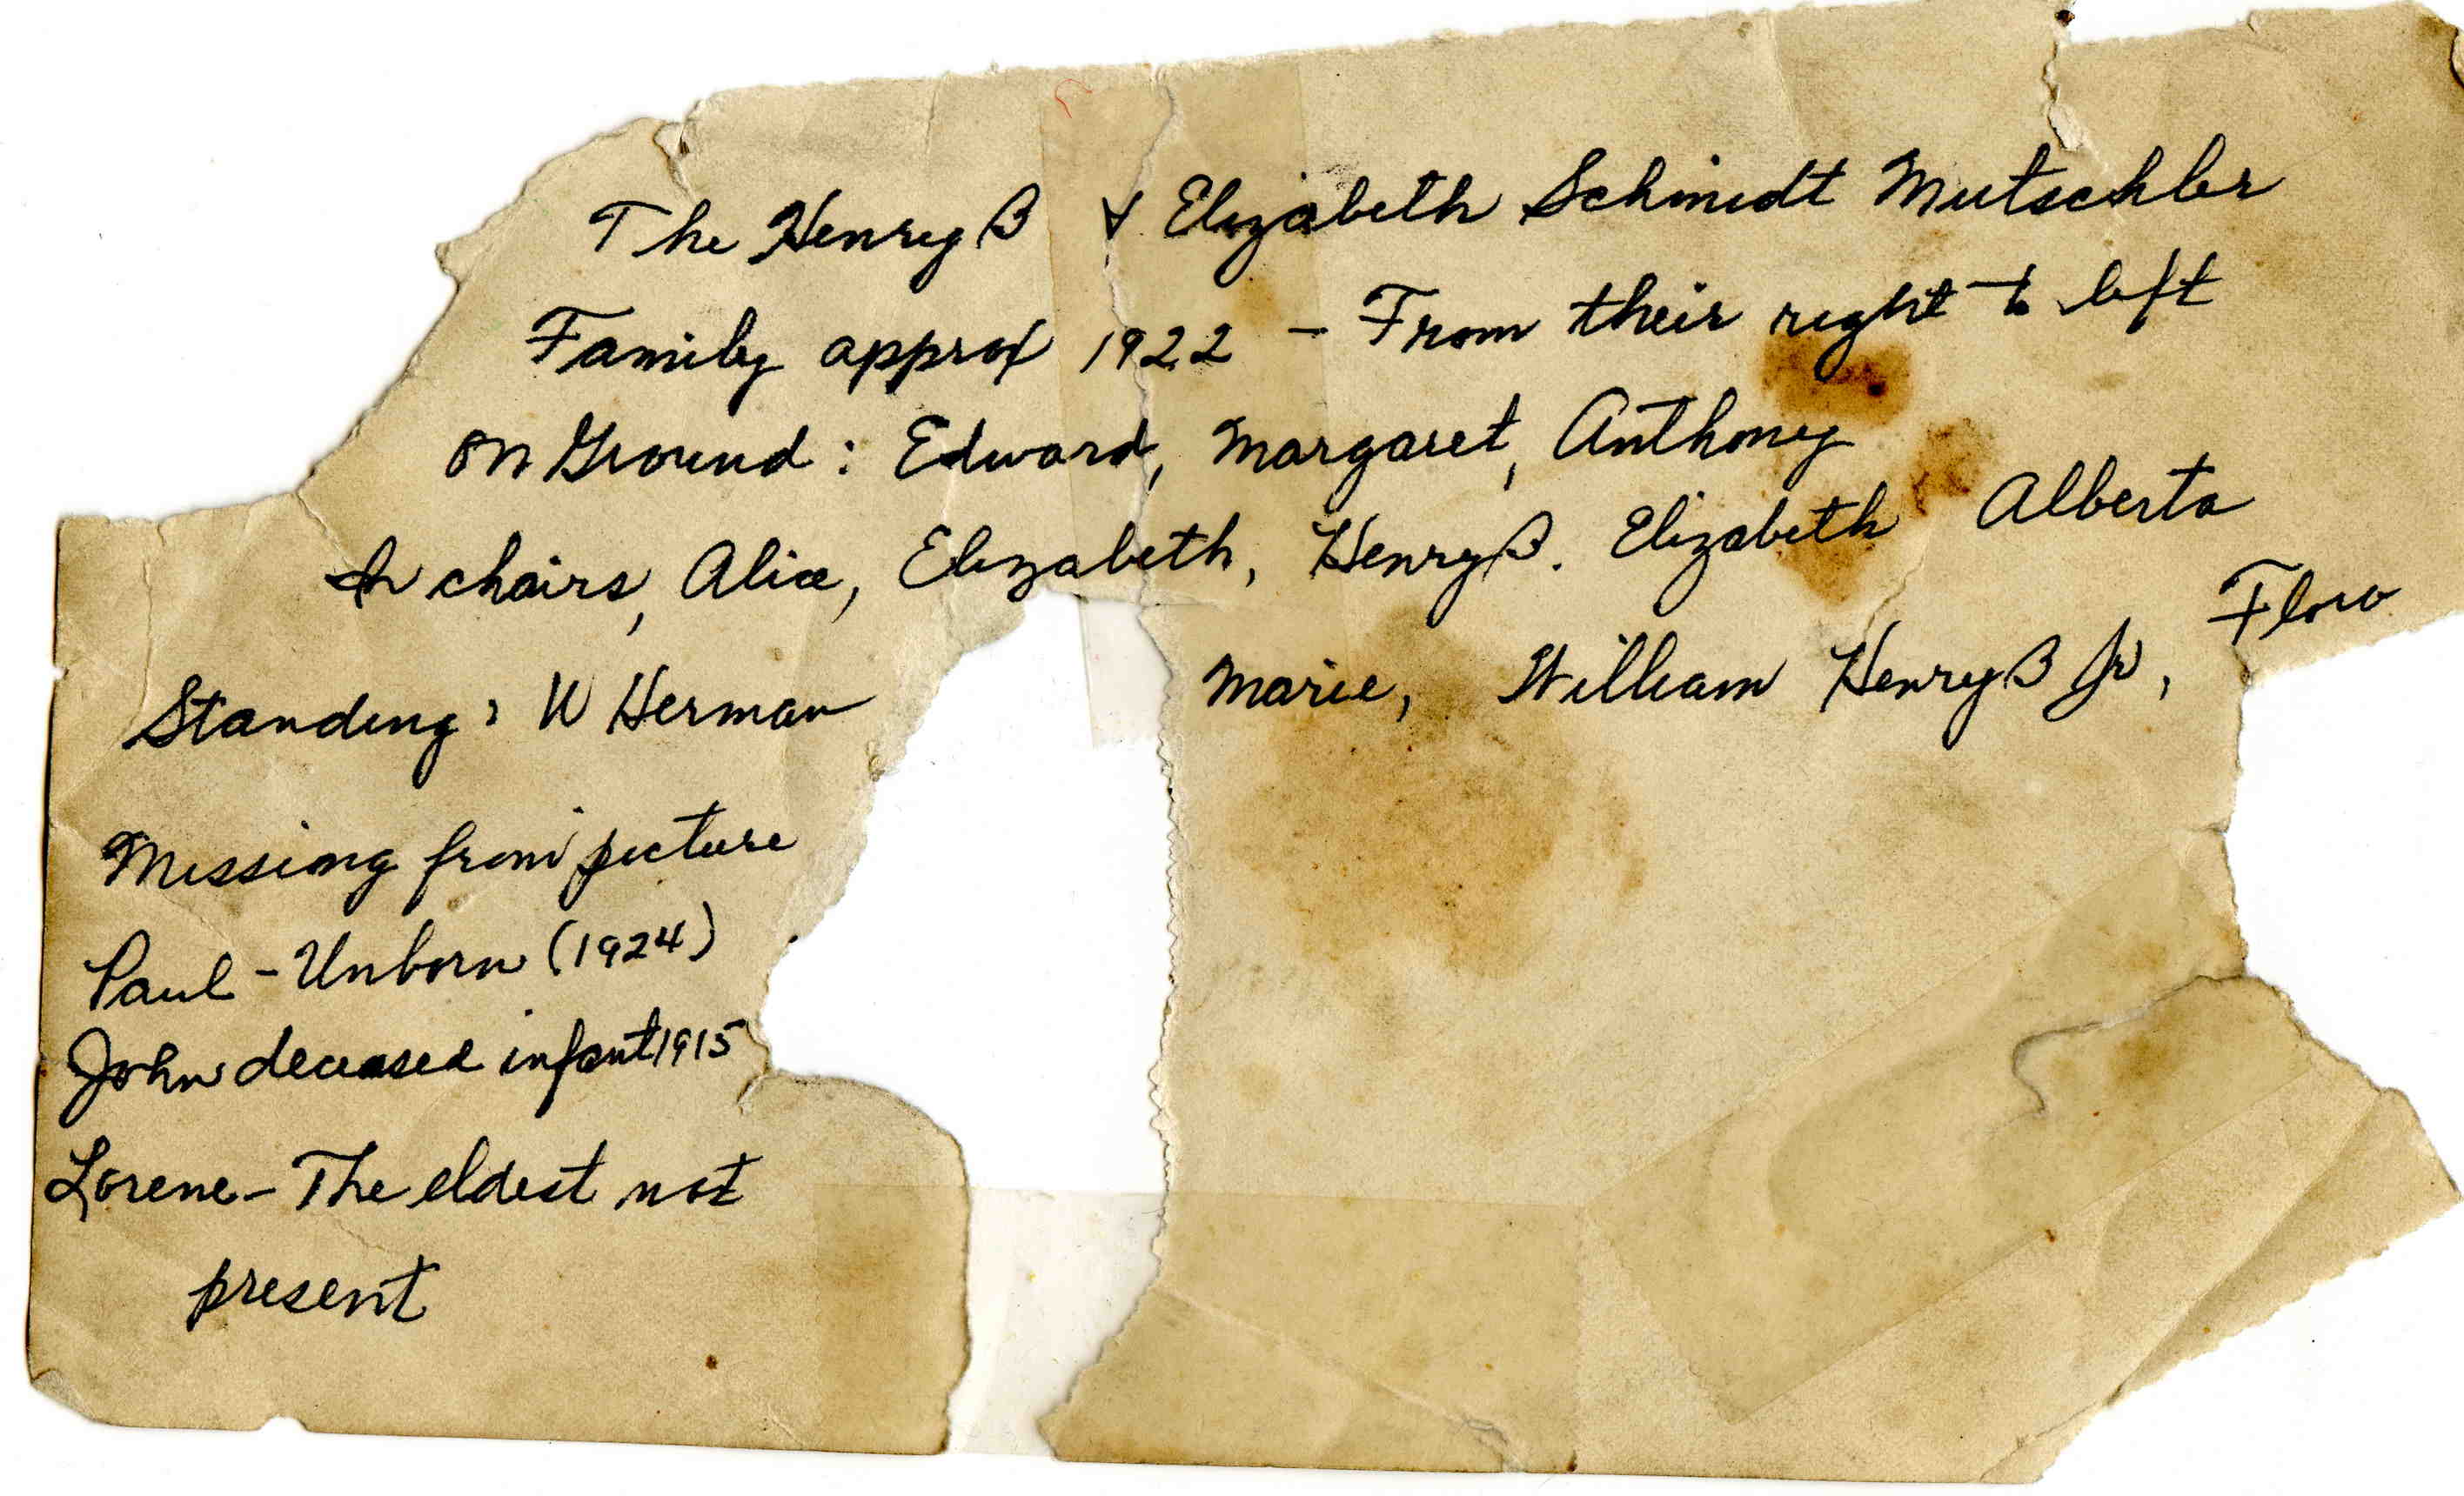 The Henry B & Elizabeth Schmidt Mutschler
Family approx 1922 - From their right to left
On Ground: Edward, Margaret, Anthony
In chairs, Alice, Elizabeth, Henry B. Elizabeth Alberta
Standing: W Herman Marie, William Henry B Jr, Flora
Missing from picture
Paul - Unborn (1924)
John deceased infant 1915
Lorene - The eldest not
present